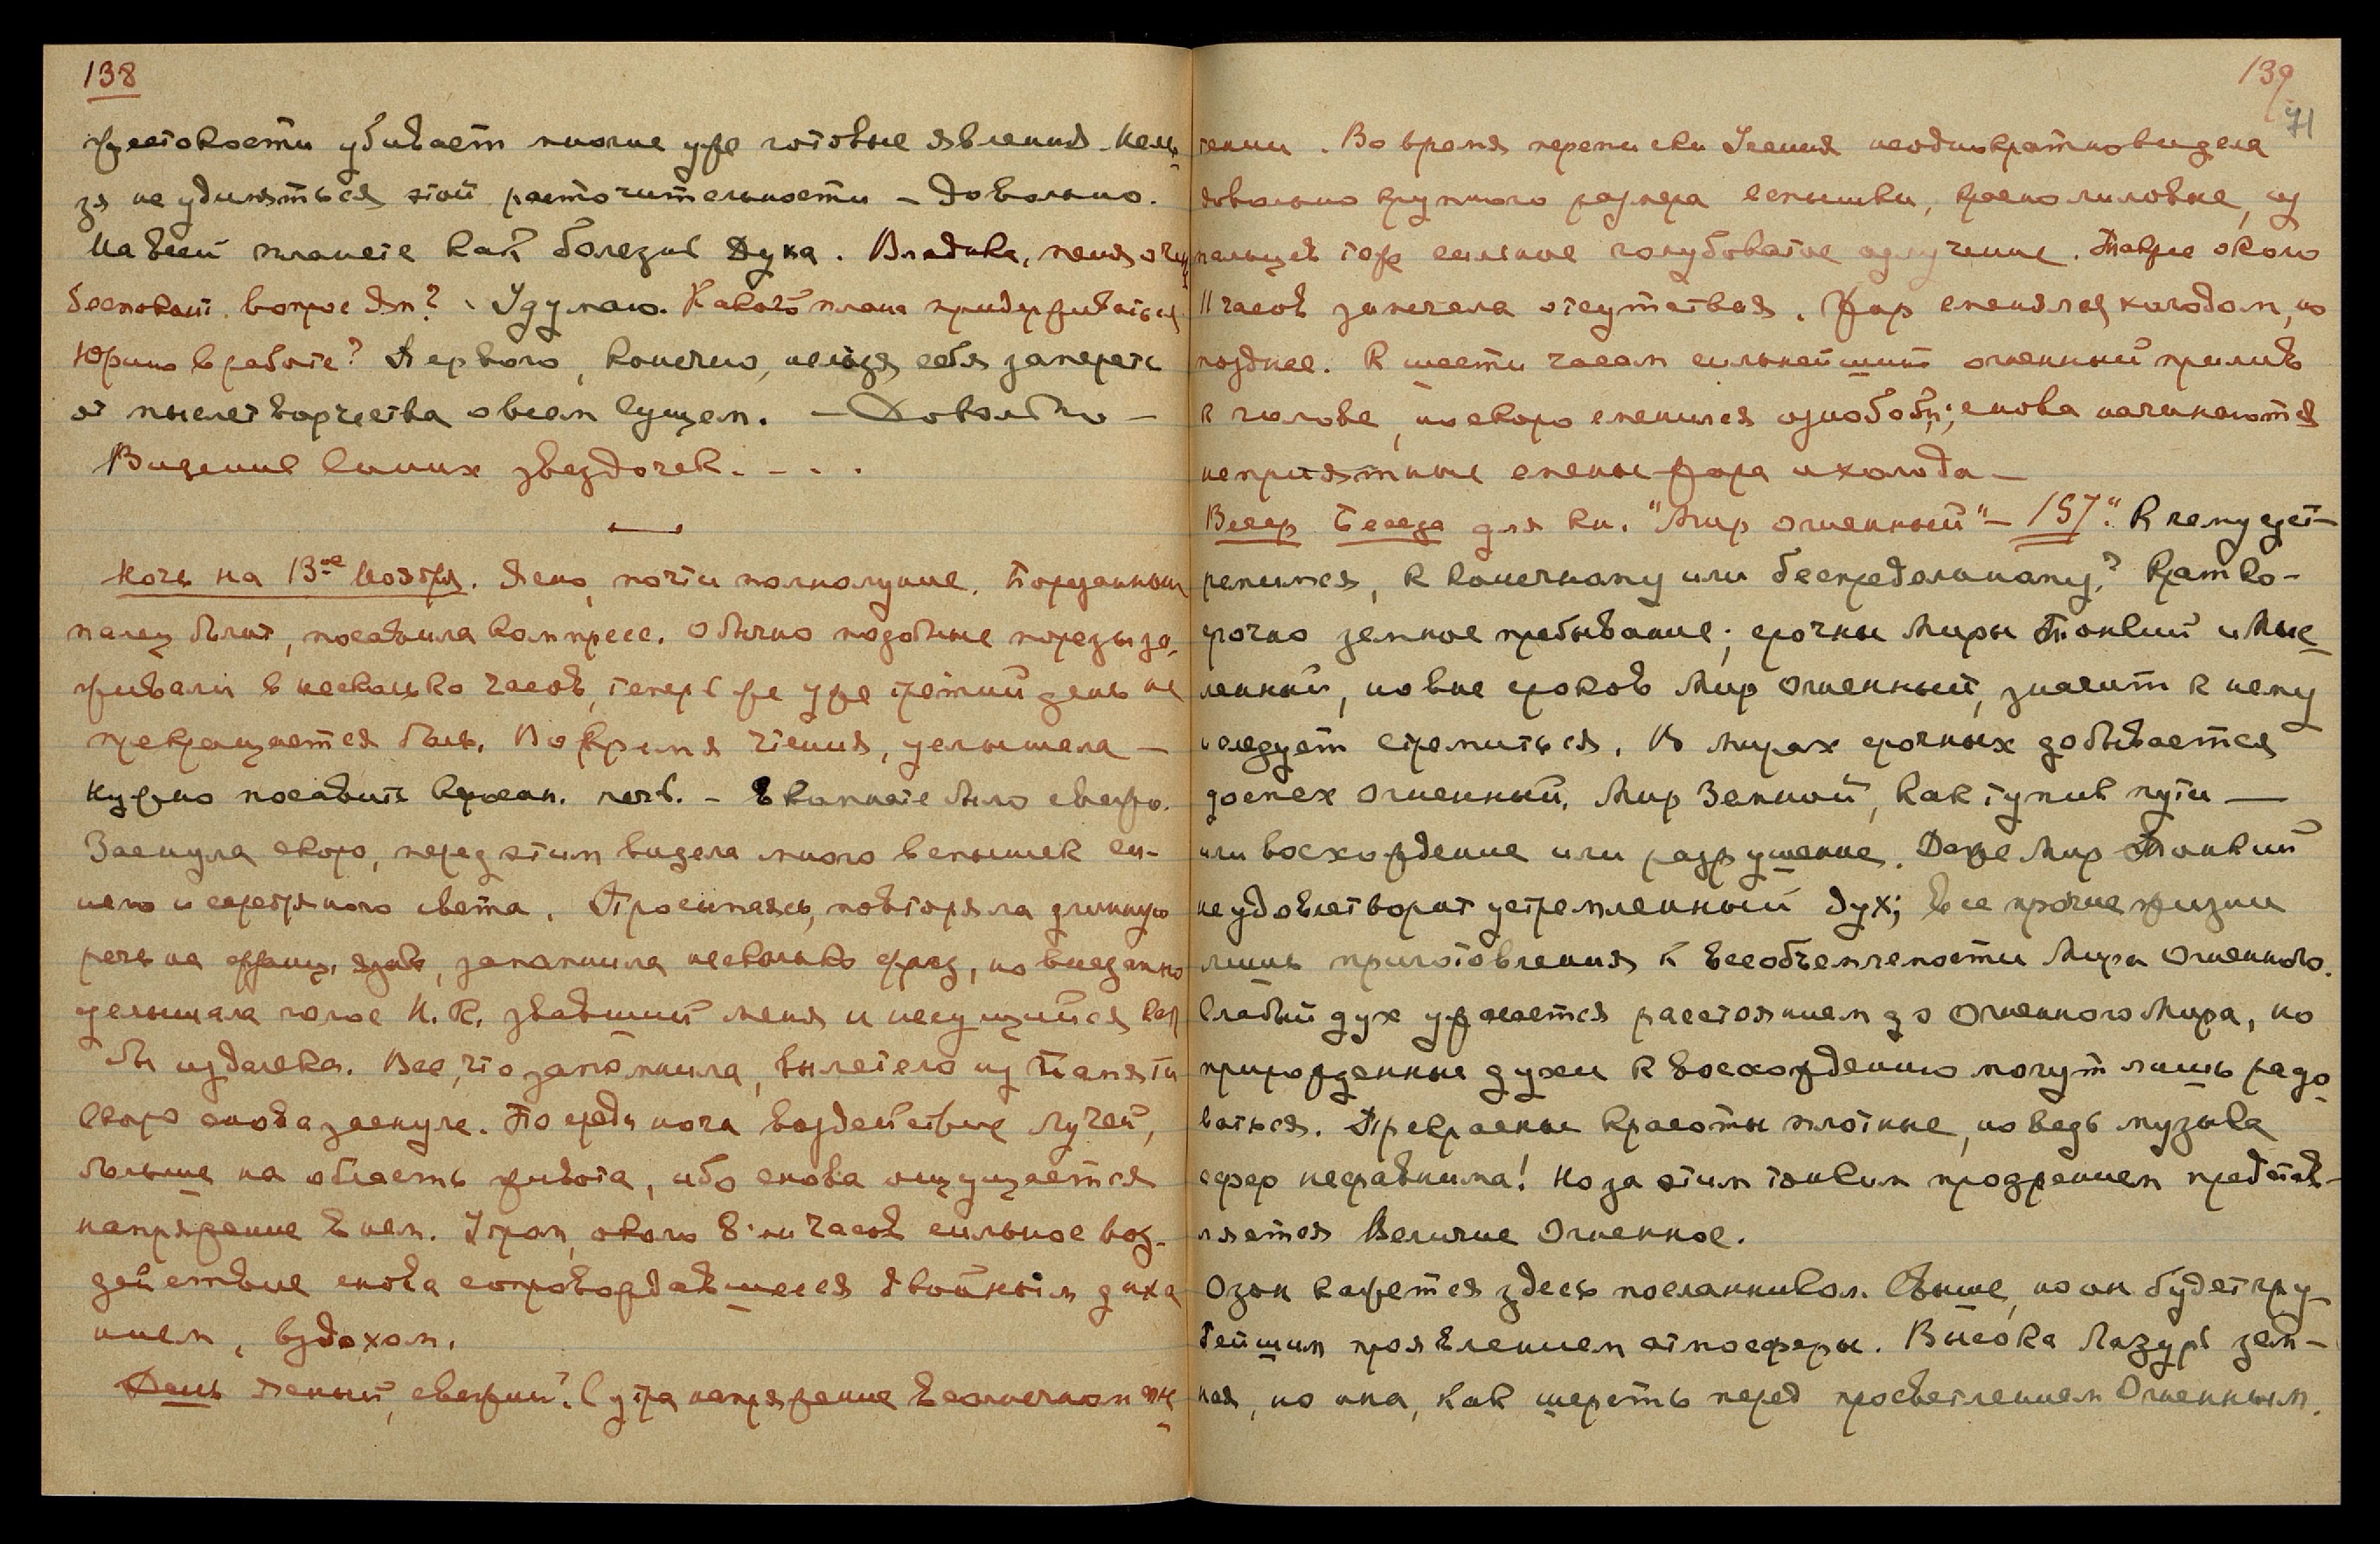 138
жестокости убивает многие уже готовые явления. Нель-
зя не удивляться этой расточительности – Довольно.
На всей планете как болезнь Духа. Владыка, меня очень
беспокоит вопрос Эт? Я думаю. Какого плана придерживаться
Юрию в работе? Первого, конечно, нельзя себя запереть
от мыслетворчества о всем Сущем. – Довольно –
Видение синих звездочек. . . .
Ночь на 13ое Ноября. Ясно, почти полнолуние. Порезанный
палец болит, поставила компресс. Обычно подобные порезы за-
живали в несколько часов, теперь же уже третий день не
прекращается боль. Во время чтения, услышала –
Нужно поставить керосин. печь. – В комнате было свежо.
Заснула скоро, перед этим видела много вспышек си-
него и серебряного света. Просыпаясь, повторяла длинную
речь на франц. языке, запомнила несколько фраз, но внезапно
услышала голос Н. К. звавший меня и несущийся как
бы издалека. Все, что запомнила, вылетело из памяти
скоро снова заснула. Посреди ночи воздействие Лучей,
больше на область живота, ибо снова ощущается
напряжение в нем. Утром, около 8-ми часов сильное воз-
действие снова сопровождавшееся двойным дыха
нием, вздохом.
День ясный, свежий. С утра напряжение в солнечном спл
139
71
тении. Во время переписки Учения неоднократно видела
довольно крупного размера вспышки, красно лиловые, из
пальцев тоже сильное голубоватое излучение. Также около
11 часов замечала отсутствия. Жар сменялся холодом, но
позднее. К шести часам сильнейший огненный прилив
к голове, но скоро сменился ознобом; снова начинаются
неприятные смены жара и холода –
Вечер Беседа для кн. "Мир Огненный" – 157." К чему уст-
ремимся, к конечному или беспредельному? Кратко-
срочно земное пребывание; срочны Миры Тонкий и Мыс
ленный, но вне сроков Мир Огненный, значит к нему
и следует стремиться. В мирах срочных добывается
доспех Огненный. Мир Земной, как тупик пути –
или восхождение или разрушение. Даже Мир Тонкий
не удовлетворит устремленный дух; все прочие жизни
лишь приготовления к всеобъемлемости Мира Огненного.
Слабый дух ужасается расстоянием до Огненного Мира, но
прирожденные духи к восхождению могут лишь радо
ваться. Прекрасны красоты плотные, но ведь музыка
сфер несравнима! Но за этим тонким прозрением представ-
ляется Величие Огненное.
Озон кажется здесь посланником Свыше, но он будет гру-
бейшим проявлением атмосферы. Высока Лазурь зем-
ная, но она, как шерсть перед просветлением Огненным.